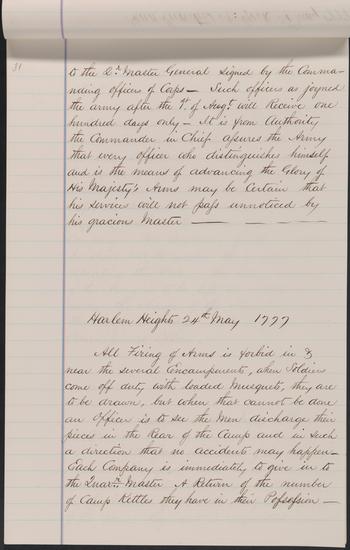 31
to the Qr. Master General signed by the Comma-
nding officers of Corps — Such officers as joyned
the army after the 1st of Augt. will Receive one
hundred days only — It is from Authority
the Commander in Chief assures the Army
that every officer who distinguishes himself
and is the means of advancing the Glory of
His Majesty's Arms may be Certain that
his services will not pass unnoticed by
his gracious Master —
Harlem Heights 24th May 1777
All Firing of Arms is forbid in &
near the several Encampments, when Soldiers
come off duty with loaded Musquets, they are
to be drawn, but when that cannot be done
an Officer is to see the Men discharge their
pieces in the Rear of the Camp and in such
a direction that no accidents may happen —
Each Company is immediately to give in to
the Quar. Master A Return of the number
of Camp Kettles they have in their Possession —